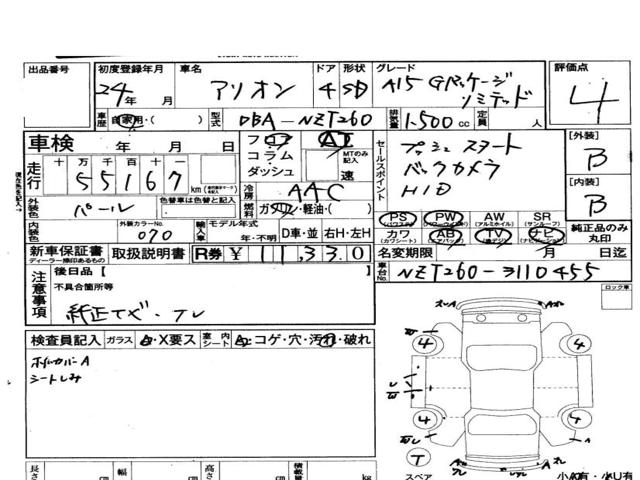 出品番号 初度登録年月 車名 ドア 形状 グレード 評価点
24年 月 アリオン 4 SD A15 Gパッケージ リミテッド 4
車歴 自家用・( ) 型式 DBA-NZT260 排気量 1500cc 定員 人
車検 年 月 日 フロア コラム・ダッシュ AT MTのみ記入 速
走行 十 万 千 百 十 一 55167 km
冷房 AAC
外装色 パール 色替車は色替と記入 燃料 ガソリン・軽油・( )
内装色 外装カラーNo. 070 輸入車 モデル年式 年・不明 D車・並 右H・左H
新車保証書 ディーラー捺印あるもの 取扱説明書 R券 ¥11,330
セールスポイント プッシュスタート
バックカメラ
HID
PS PW AW SR
カワ AB TV ナビ
[外装] B
[内装] B
純正品のみ丸印
名変期限 月 日迄
車台No. NZT260-3110455
注意事項 後日品[ ]
不具合箇所等
純正ナビ・TV
ロック車
検査員記入 ガラス A・X要ス 室内シート A・コゲ・穴・汚れ・破れ
ホイルカバーA
シートしみ
4 4
4 4
T
スペア
長さ cm 幅 cm 高さ cm 積載量 kg
小A有・小U有